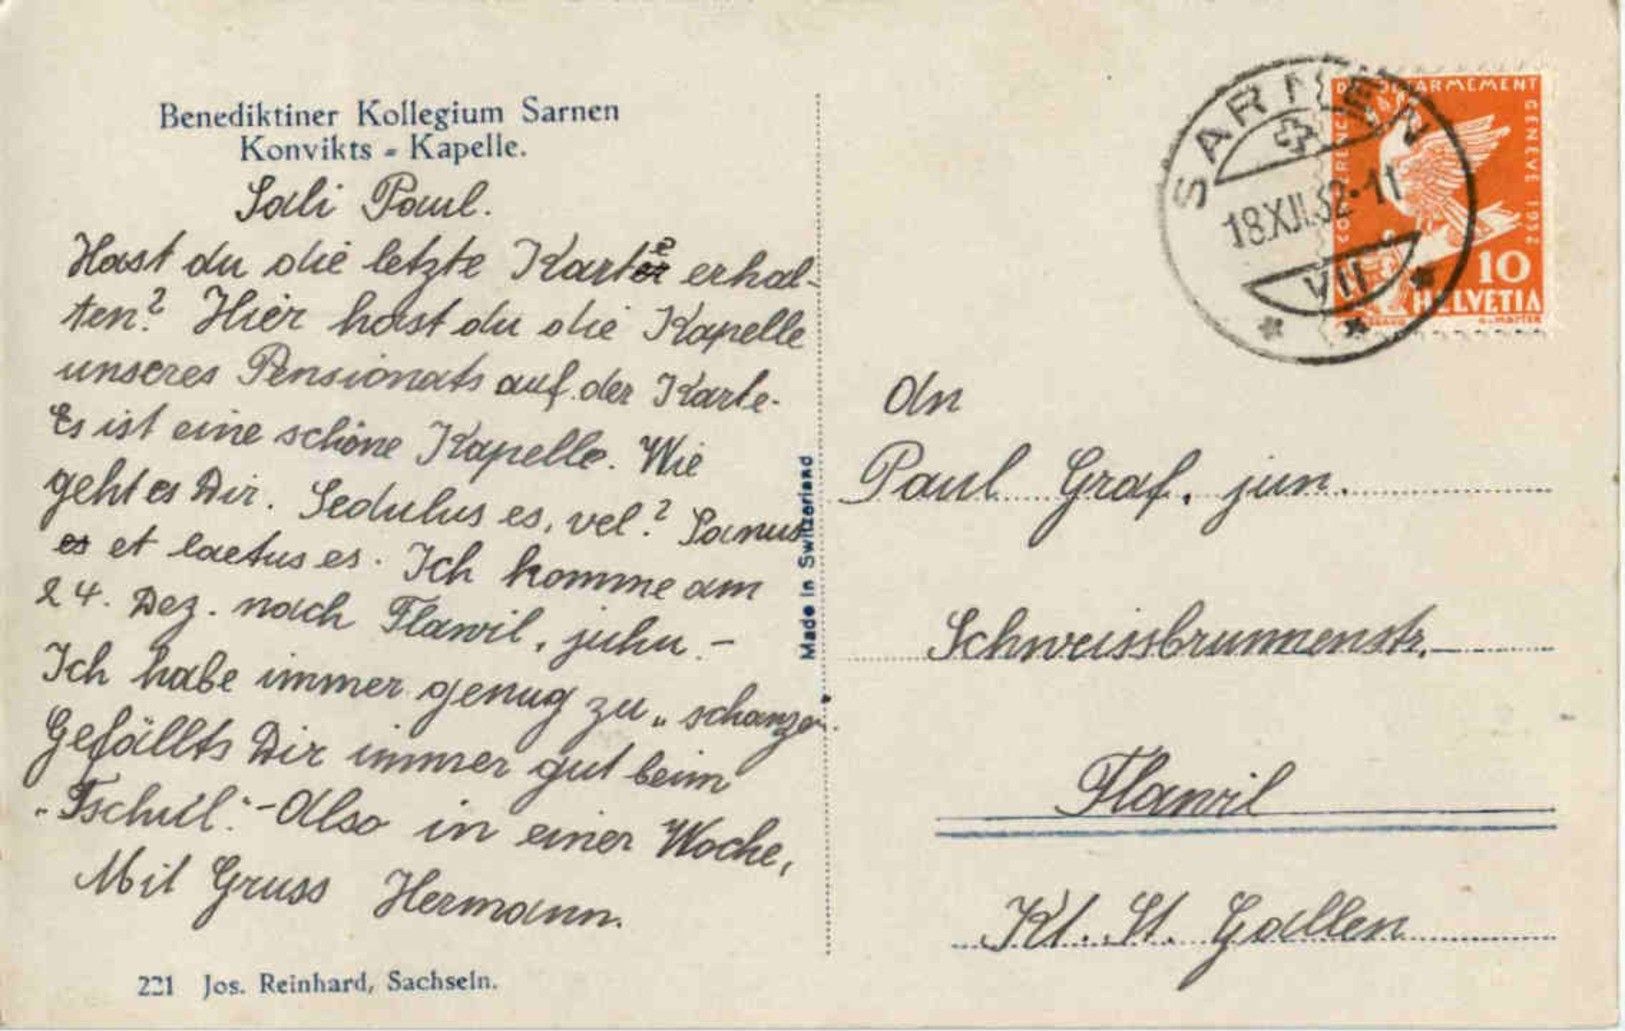 Benediktiner Kollegium Sarnen
Konvikts - Kapelle.
Sali Paul.
Hast du die letzte Karte erhal-
ten? Hier hast du die Kapelle
unseres Pensionats auf der Karte.
Es ist eine schöne Kapelle. Wie
geht es Dir. Sedulus es, vel? Sanus
es et laetus es. Ich komme am
24. Dez. nach Flawil, juhu. –
Ich habe immer genug zu „schanzen.
Gefällts Dir immer gut beim
„Tschill“. – Also in einer Woche,
Mit Gruss Hermann.
221 Jos. Reinhard, Sachseln.
Made in Switzerland
SARNEN
18.XII.32-11
VII
GENÈVE 1932
10
HELVETIA
An
Paul Graf. jun.
Schweissbrunnenstr.
Flawil
Kt. St. Gallen